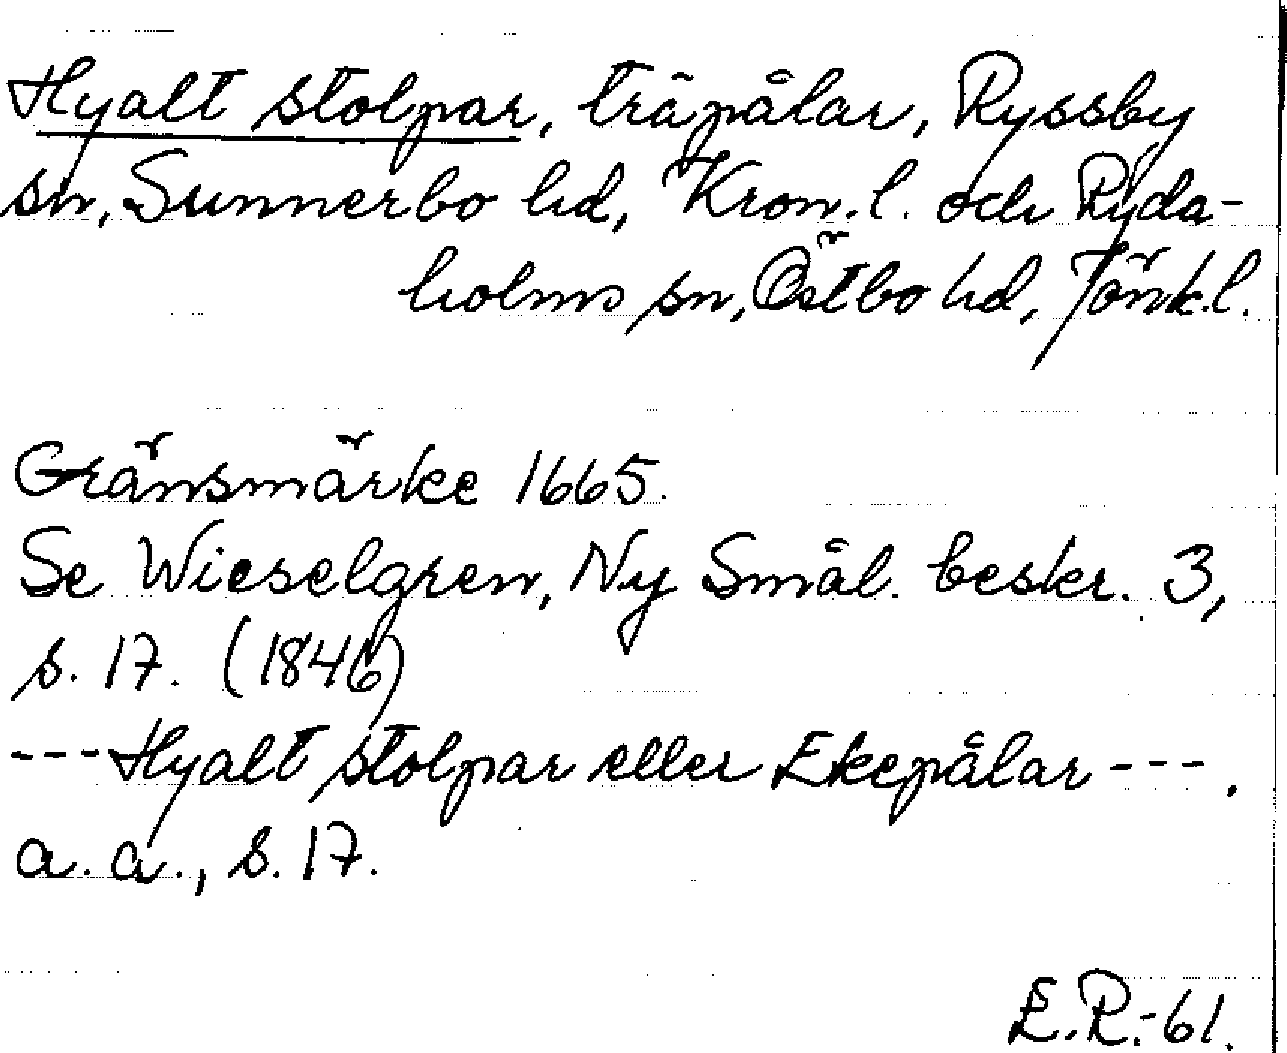 Hyalt stolpar, träpålar, Ryssby
sn, Sunnerbo hd, Kron. l. och Ryda-
holms sn, Östbo hd, Jönk. l.
Gränsmärke 1665.
Se Wieselgren, Ny Smål. beskr. 3,
s. 17. (1846)
--- Hyalt stolpar eller Ekepålar ---.
a. a., s. 17.
E.R.-61.